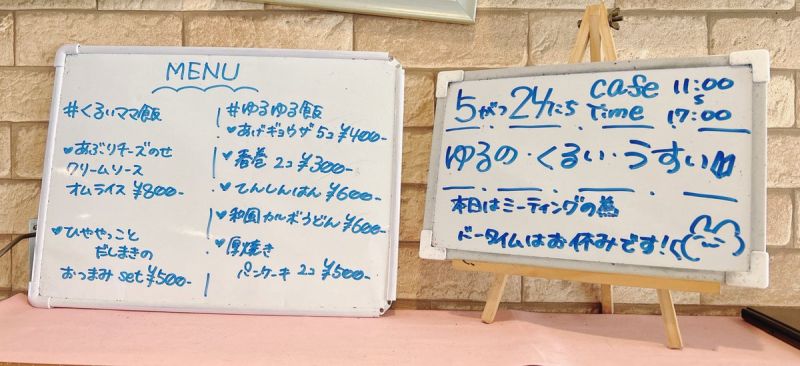 MENU
#くるいママ飯
♥あぶりチーズのせ
クリームソース
オムライス ¥800-
♥ひややっこと
だしまきの
おつまみset ¥500-
#ゆるゆる飯
♥あげギョウザ 5コ ¥400-
♥春巻 2コ ¥300-
♥てんしんはん ¥600-
♥和風カルボうどん ¥600-
♥厚焼き
パンケーキ 2コ ¥500-
5がつ24にち
cafe Time
11:00
〜
17:00
ゆるの・くるい・うすい
本日はミーティングの為
ドータイムはお休みです!